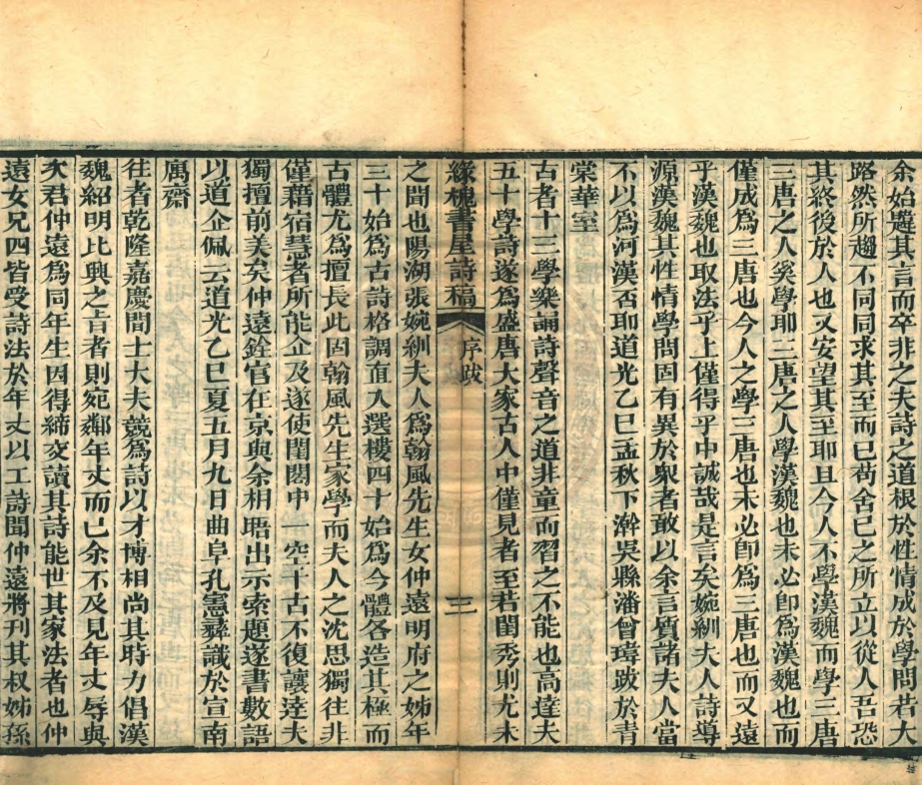 余始韙其言而卒非之夫詩之道根於性情成於學問者大
路然所趨不同同求其至而已苟舍已之所立以從人吾恐
其終後於人也又安望其至耶且今人不學漢魏而學三唐
三唐之人奚學耶三唐之人學漢魏也未必卽爲漢魏也而
僅成爲三唐也今人之學三唐也未必卽爲三唐也而又遠
乎漢魏也取法乎上僅得乎中誠哉是言矣婉紃夫人詩導
源漢魏其性情學問固有異於衆者敢以余言質諸夫人當
不以爲河漢否耶道光乙巳孟秋下澣吳縣潘曾瑋跋於青
棠華室
古者十三學樂誦詩聲音之道非童而習之不能也高達夫
五十學詩遂爲盛唐大家古人中僅見者至若閨秀則尤未
綠槐書屋詩稿
序跋
三
之間也陽湖張婉紃夫人爲翰風先生女仲遠明府之姊年
三十始爲古詩格調直入選樓四十始爲今體各造其極而
古體尤爲擅長此固翰風先生家學而夫人之沈思獨往非
僅藉宿慧者所能企及遂使閨閣中一空千古不復讓達夫
獨擅前美矣仲遠銓官在京與余相晤出示索題遂書數語
以道企佩云道光乙巳夏五月九日曲阜孔憲彝識於宣南
寓齋
往者乾隆嘉慶間士大夫競爲詩以才博相尚其時力倡漢
魏紹明比興之旨者則宛鄰年丈而已余不及見年丈辱與
次君仲遠爲同年生因得締交讀其詩能世其家法者也仲
遠女兄四皆受詩法於年丈以工詩聞仲遠將刊其叔姊孫